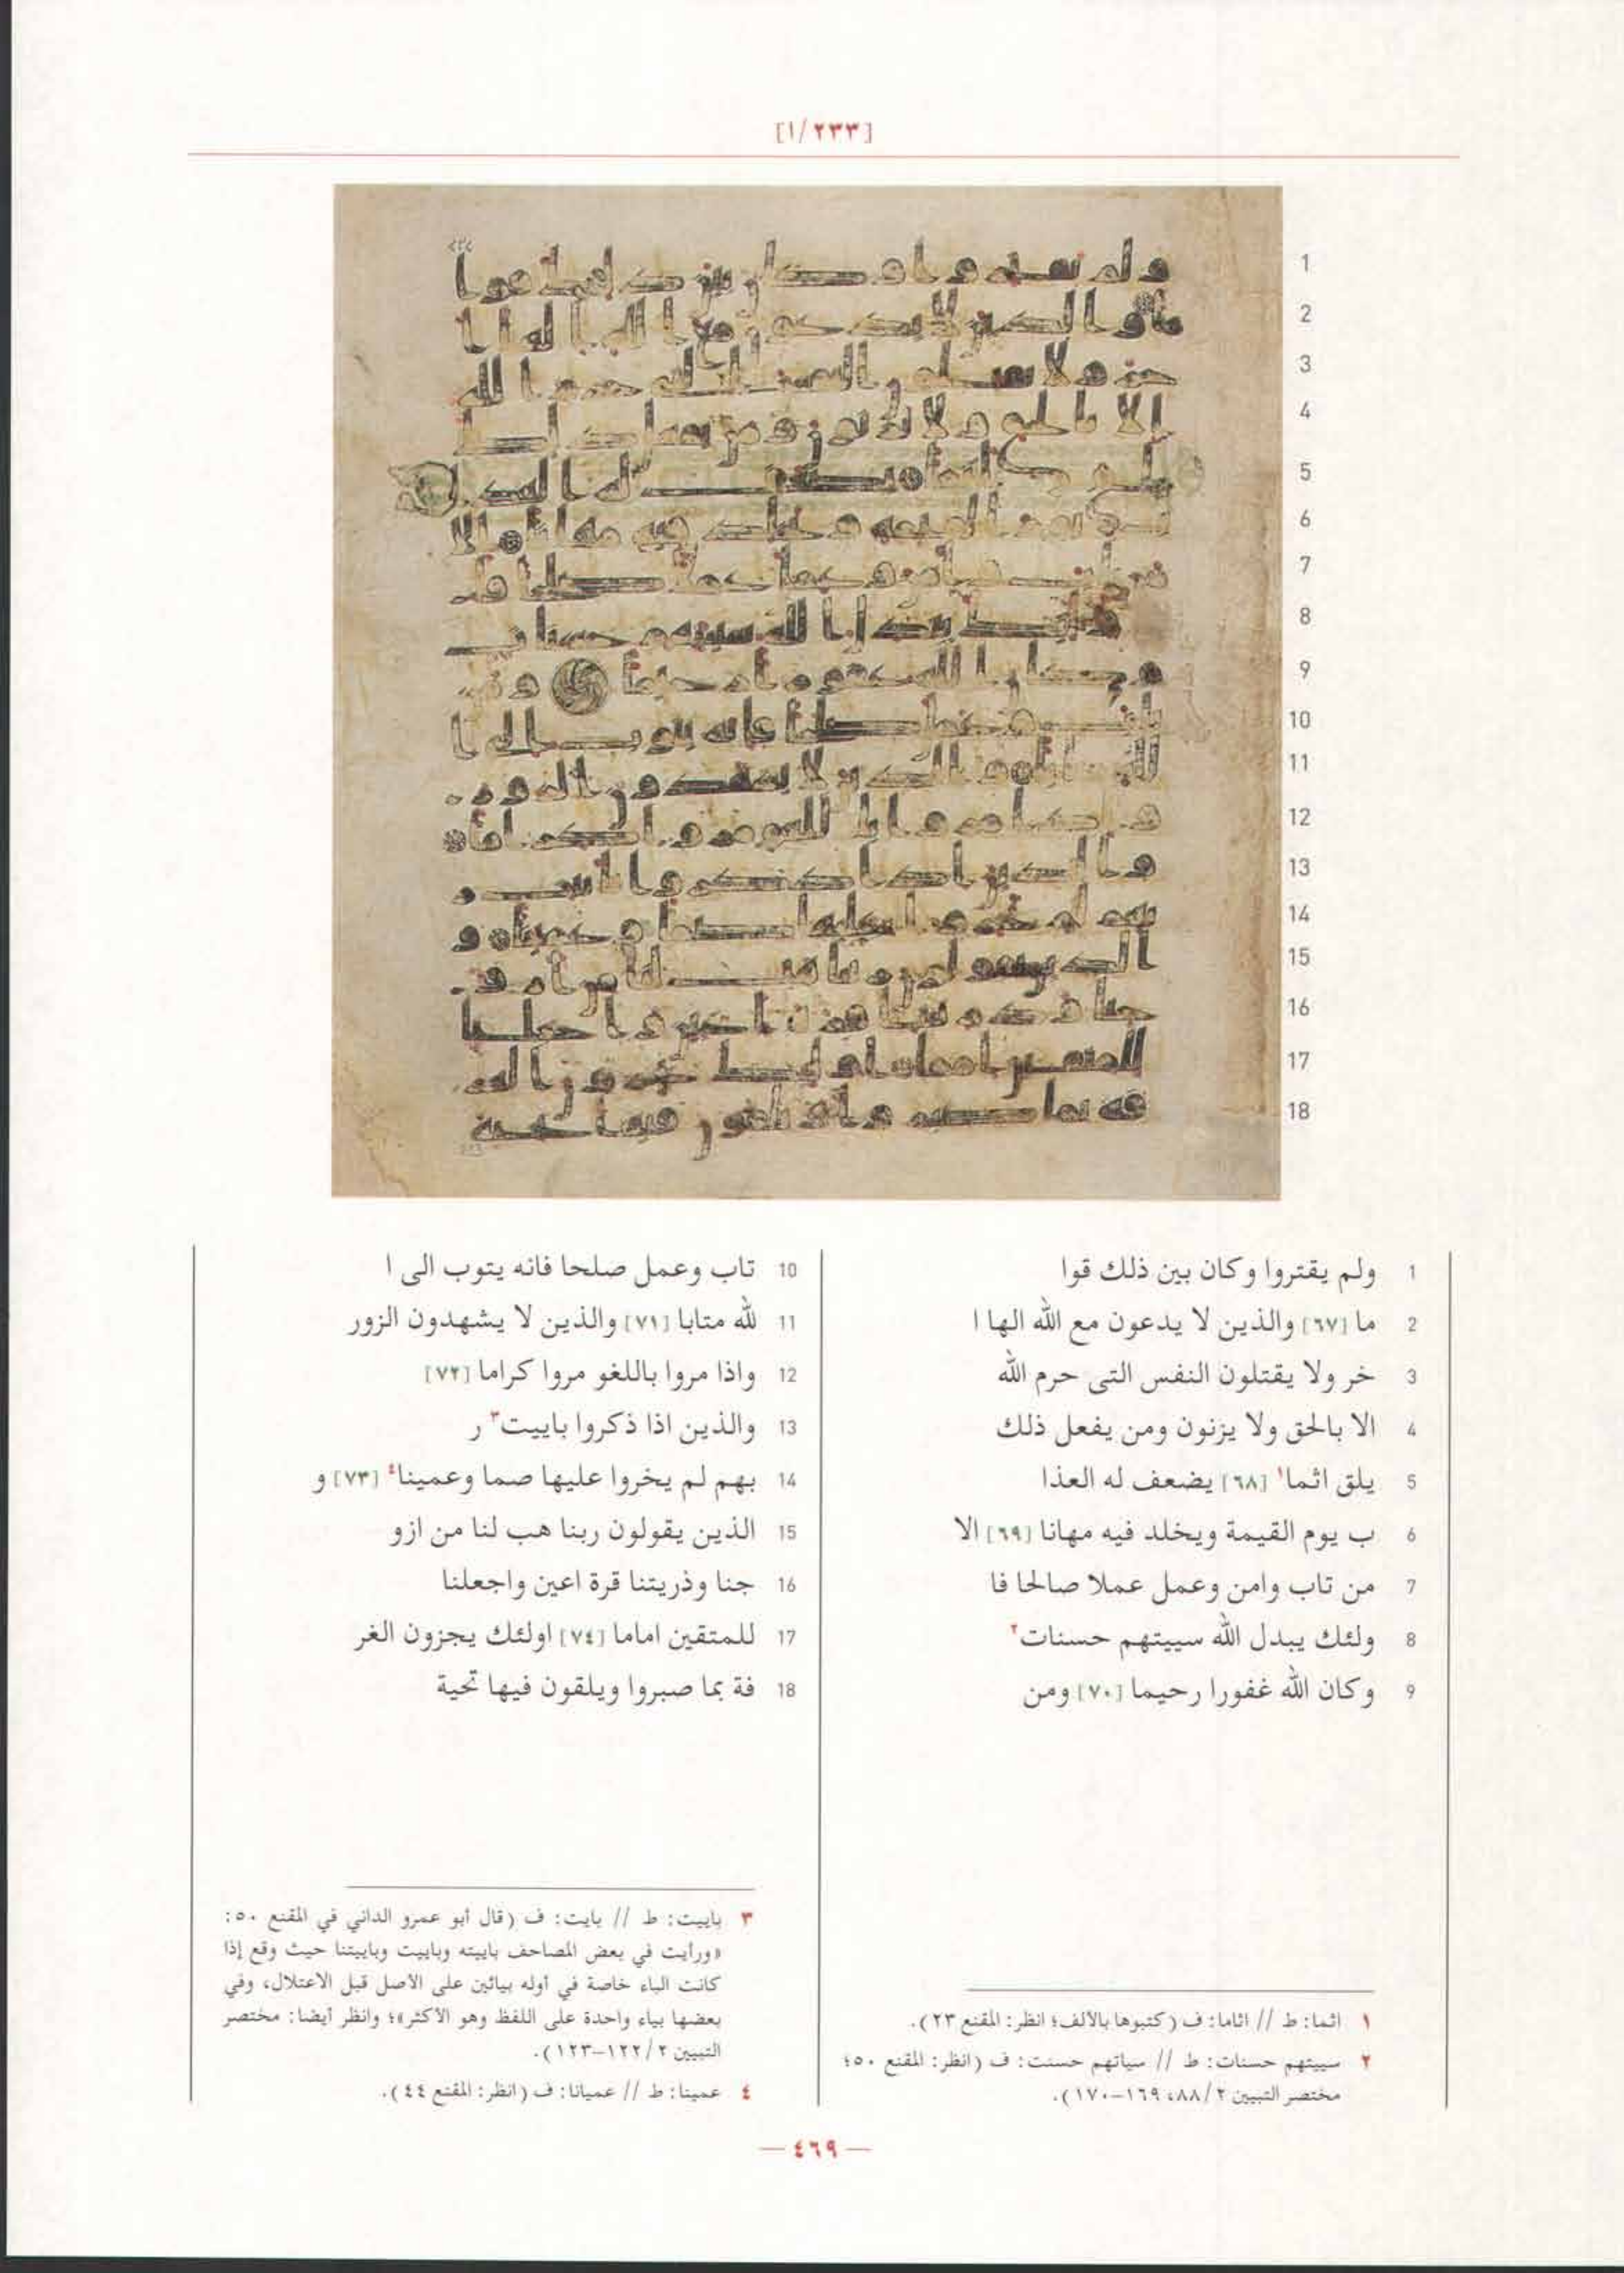 [١/٢٣٣]
1 ولم يقتروا وكان بين ذلك قوا
2 ما [٦٧] والذين لا يدعون مع الله الها ا
3 خر ولا يقتلون النفس التى حرم الله
4 الا بالحق ولا يزنون ومن يفعل ذلك
5 يلق اثما١ [٦٨] يضعف له العذا
6 ب يوم القيمة ويخلد فيه مهانا [٦٩] الا
7 من تاب وامن وعمل عملا صالحا فا
8 ولئك يبدل الله سييتهم حسنات٢
9 وكان الله غفورا رحيما [٧٠] ومن
10 تاب وعمل صلحا فانه يتوب الى ا
11 لله متابا [٧١] والذين لا يشهدون الزور
12 واذا مروا باللغو مروا كراما [٧٢]
13 والذين اذا ذكروا باييت٣ ر
14 بهم لم يخروا عليها صما وعمينا٤ [٧٣] و
15 الذين يقولون ربنا هب لنا من ازو
16 جنا وذريتنا قرة اعين واجعلنا
17 للمتقين اماما [٧٤] اولئك يجزون الغر
18 فة بما صبروا ويلقون فيها تحية
١ اثما: ط // اثاما: ف (كتبوها بالألف؛ انظر: المقنع ٢٣).
٢ سييتهم حسنات: ط // سياتهم حسنت: ف (انظر: المقنع ٥٠؛
مختصر التبيين ٢/٨٨، ١٦٩-١٧٠).
٣ باييت: ط // بايت: ف (قال أبو عمرو الداني في المقنع ٥٠:
«ورأيت في بعض المصاحف باييته وباييت وباييتنا حيث وقع إذا
كانت الباء خاصة في أوله بيائين على الأصل قبل الاعتلال، وفي
بعضها بياء واحدة على اللفظ وهو الأكثر»؛ وانظر أيضا: مختصر
التبيين ٢/١٢٢-١٢٣).
٤ عمينا: ط // عميانا: ف (انظر: المقنع ٤٤).
— ٤٦٩ —